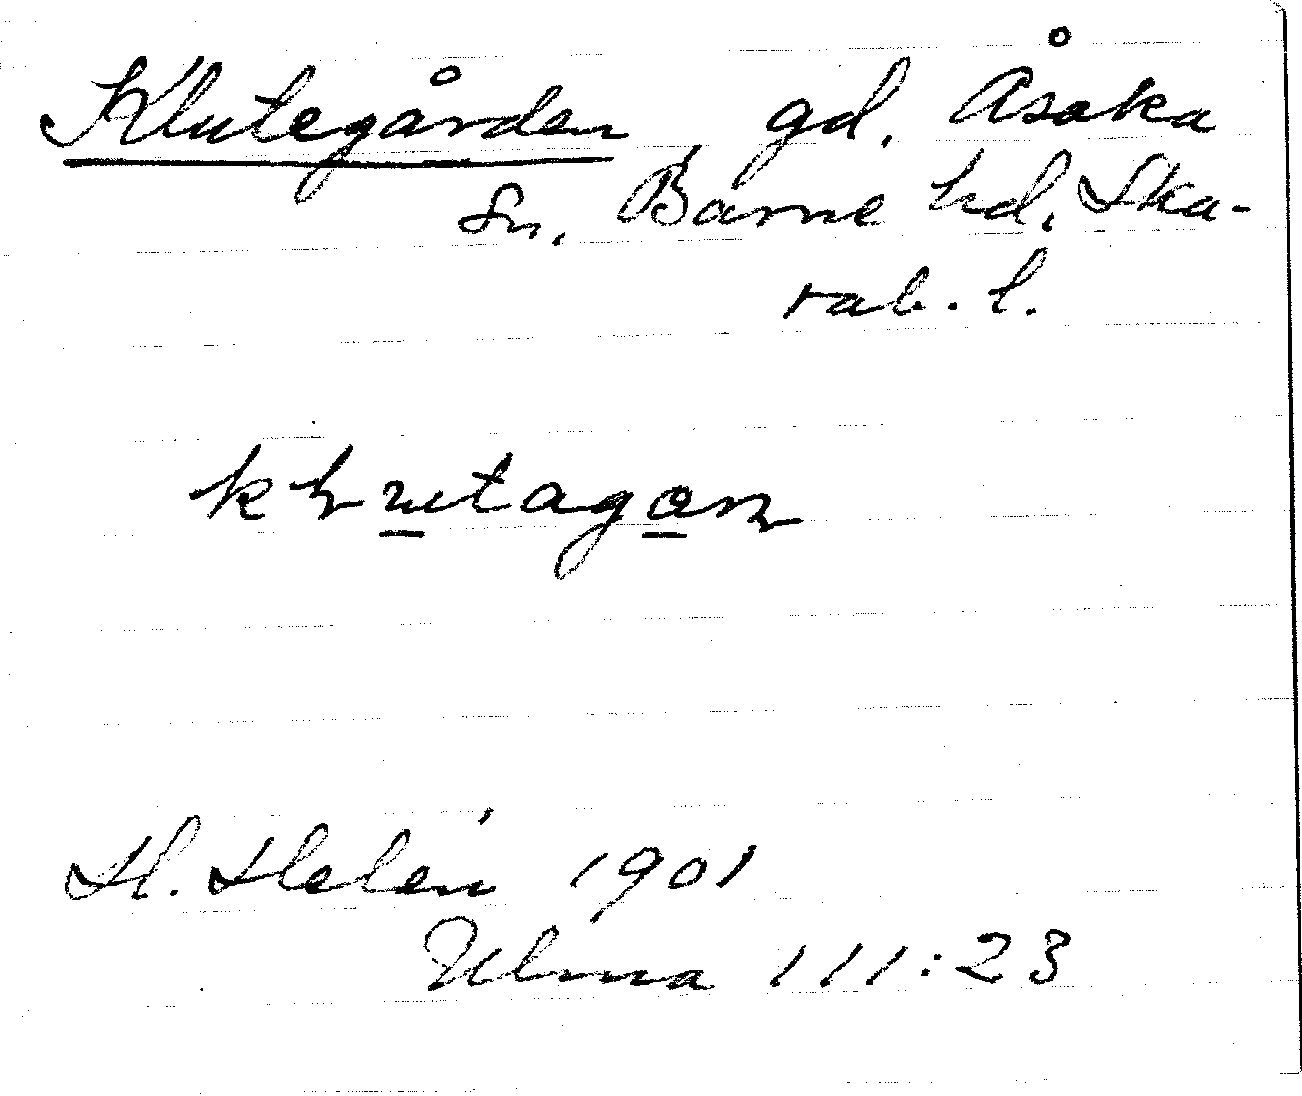 Klutegården gd. Åsaka
sn. Barne hd. Ska-
rab. l.
H. Helén 1901
Ulma 111:23